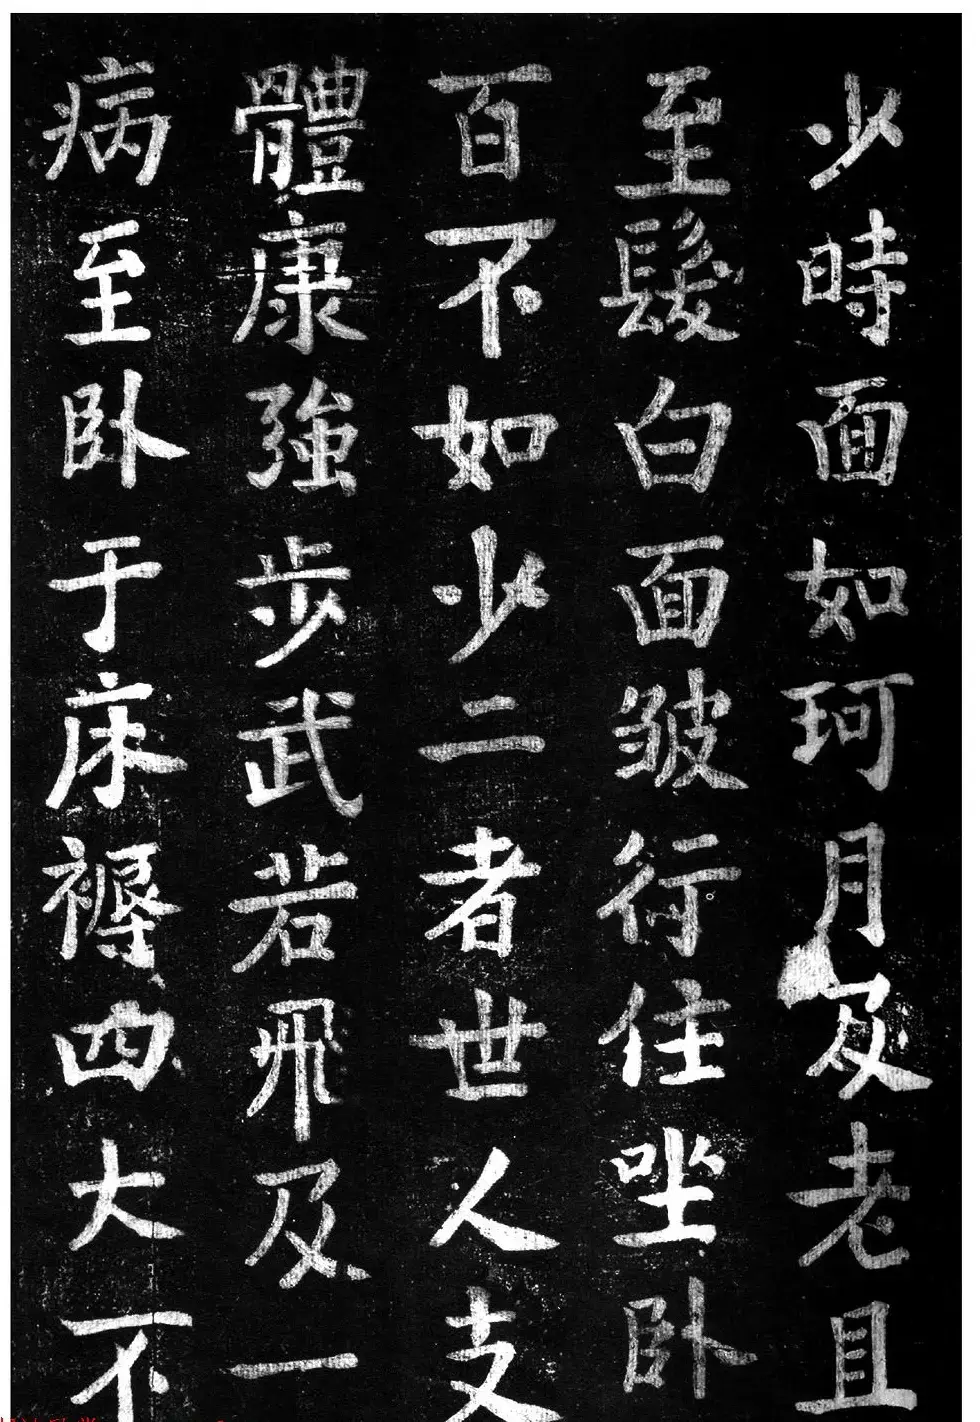 少時面如珂月及老且
至髮白面皱行住坐卧
百不如少二者世人支
體康強步武若飛及一
病至卧于床褥四大不